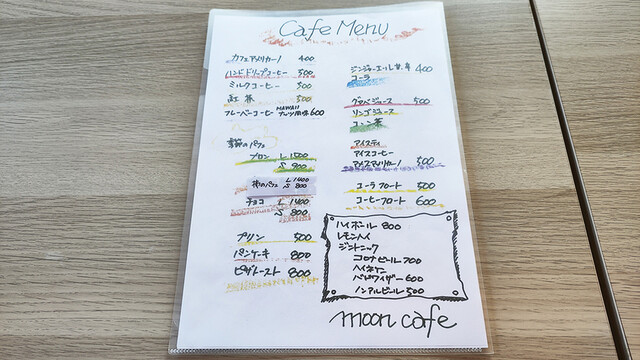 Cafe Menu
カフェアメリカーノ 400
ハンドドリップコーヒー 500
ミルクコーヒー 500
紅茶 500
フレーバーコーヒー HAWAII ナッツ風味 600
季節のパフェ
L 1500
S 900
桃のパフェ L 1400
S 800
チョコ L 1400
S 800
プリン 500
パンケーキ 800
ピザトースト 800
ジンジャーエール 甘・辛 400
コーラ
グァバジュース 500
リンゴジュース
コーン茶
アイスティ
アイスコーヒー
アイスアメリカーノ 500
コーラフロート 500
コーヒーフロート 600
ハイボール 800
レモンハイ
ジントニック
コロナビール 700
ハイネケン
バドワイザー 600
ノンアルビール 500
moon cafe